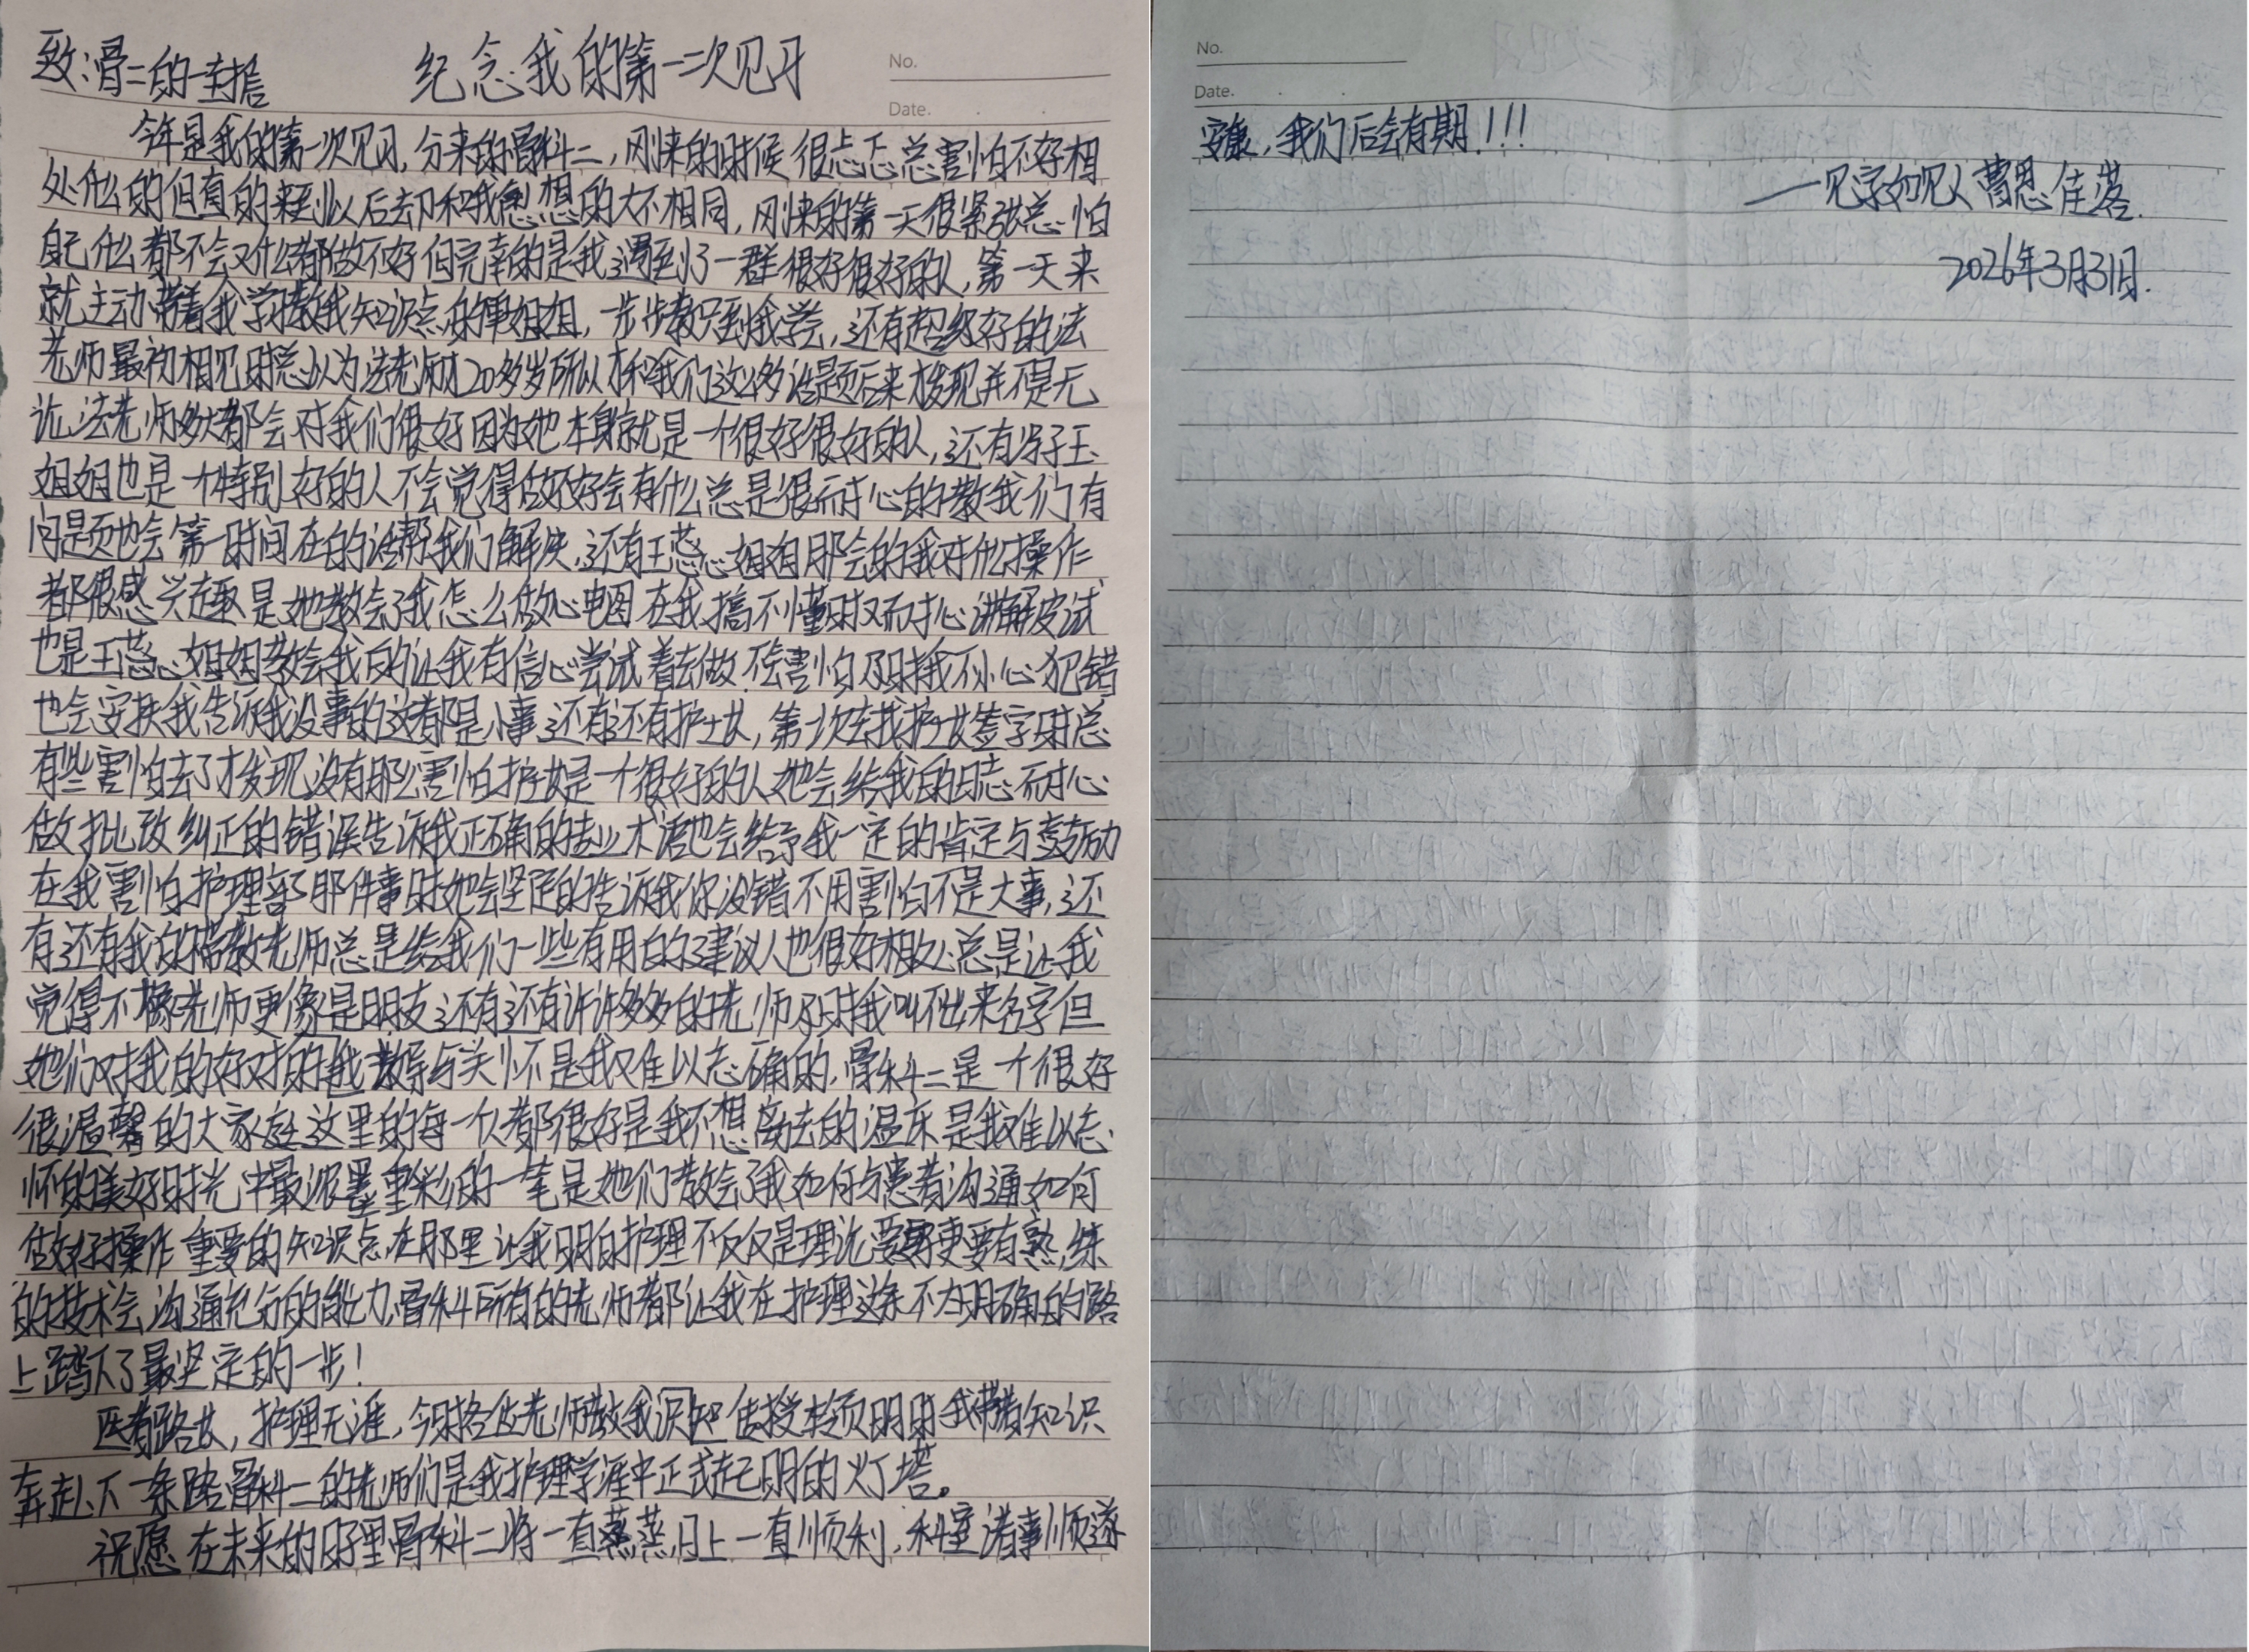 致:骨二的一封信
纪念我的第一次见习
No.
Date.
今年是我的第一次见习,分来的骨科二,刚来的时候很忐忑总害怕不好相
处什么的但真的来到以后却和我想的大不相同,刚来的第一天很紧张总怕
自己什么都不会又什么都做不好但完幸的是我遇到了一群很好很好的人,第一天来
就主动带着我学习教我知识点的单姐姐,一步步教只到我学会,还有超级好的法
老师最初相见时总以为法老师才20多岁所以才和我们这么多话题后来才发现并不是无
论法老师多大都会对我们很好因为她本身就是一个很好很好的人,还有子玉
姐姐也是一个特别好的人不会觉得做不好会有什么总是很耐心的教我们有
问题也会第一时间在的话帮我们解决,还有王蕊姐姐那会的我对什么操作
都很感兴趣是她教会了我怎么做心电图在我搞不懂时又耐心讲解皮试
也是王蕊姐姐教会我的让我有信心尝试着去做不会害怕及时我不小心犯错
也会安抚我告诉我没事的这都是小事还有还有护士长,第一次去找护士长签字时总
有些害怕去了才发现没有那么害怕护士长是一个很好的人她会给我的日志耐心
做批改纠正的错误告诉我正确的专业术语也会给予我一定的肯定与鼓励
在我害怕护理部那件事时她会坚定的告诉我你没错不用害怕不是大事,还
有还有我的带教老师总是给我们一些有用的建议人也很好相处总是让我
觉得不像老师更像是朋友还有还有许许多多的老师及时我叫不出来名字但
她们对我的好对我的教导与关怀是我难以忘确的,骨科二是一个很好
很温馨的大家庭这里的每一个人都很好是我不想离去的温床是我难以忘
怀的美好时光中最浓墨重彩的一笔是她们教会了我如何与患者沟通如何
做好操作重要的知识点在那里让我明白护理不仅仅是理论更要有熟练
的技术会沟通充分的能力,骨科二所有的老师都让我在护理这条不太明确的路
上踏下了最坚定的一步!
医有路长,护理无涯,今时各位老师教我识知传授转页明时我带着知识
奔赴下一条路骨科二的老师们是我护理学涯中正式起明的灯塔。
祝愿在未来的日子里骨科二将一直蒸蒸日上一直顺利,科室诸事顺遂
No.
Date.
安康,我们后会有期!!!
—见字如见人曹思佳落.
2026年3月31日.